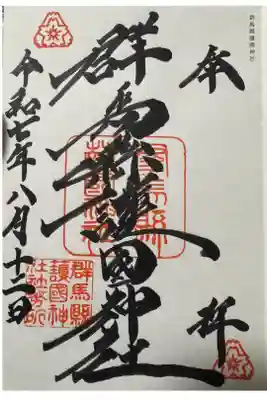 群馬縣護國神社
奉
拝
群馬縣護國神社
令和七年八月十二日
群馬縣
護國神
社社務所